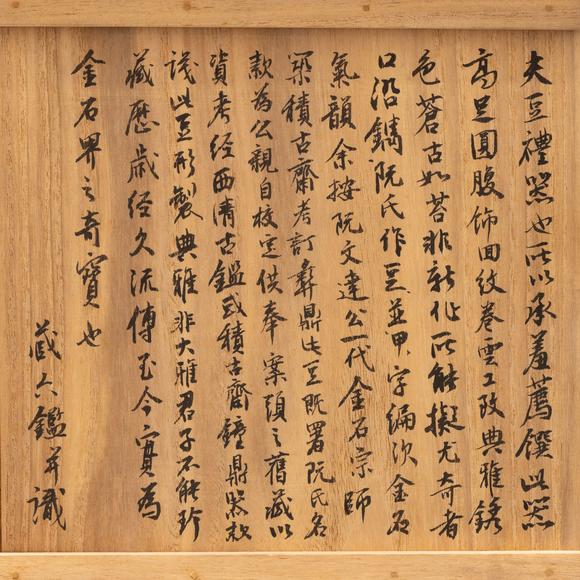 夫豆禮器也所以承羞薦饌此器
高足圓腹飾回紋卷雲工致典雅銹
色蒼古如苔非新作所能擬尤奇者
口沿鐫阮氏作豆並甲字編次金石
氣韻余按阮文達公一代金石宗師
築積古齋考訂彝鼎此豆既署阮氏名
款為公親自校定供奉案頭之舊藏以
資考經西清古鑑或積古齋鐘鼎器款
識此豆形製典雅非大雅君子不能珍
藏歷歲經久流傳至今實為
金石界之奇寶也
藏六鑑并識